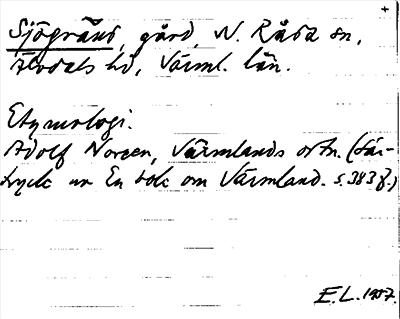 Sjögränd, gård, N. Råda sn,
Älvdals hd, Värml. län.
Etymologi.
Adolf Noreen, Värmlands ortn. (Sär-
tryck ur En bok om Värmland. s. 383 f.)
E.L. 1957.